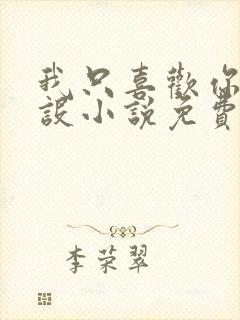 我只喜歡你
設小說免費
李荣翠